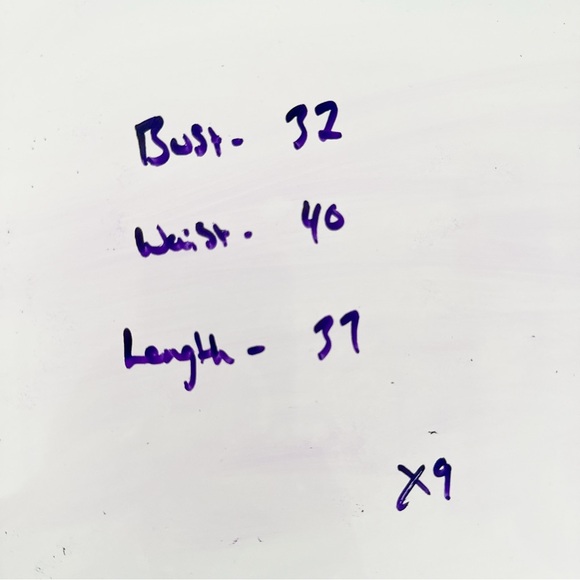 Bust - 32
Waist - 40
Length - 37
X9